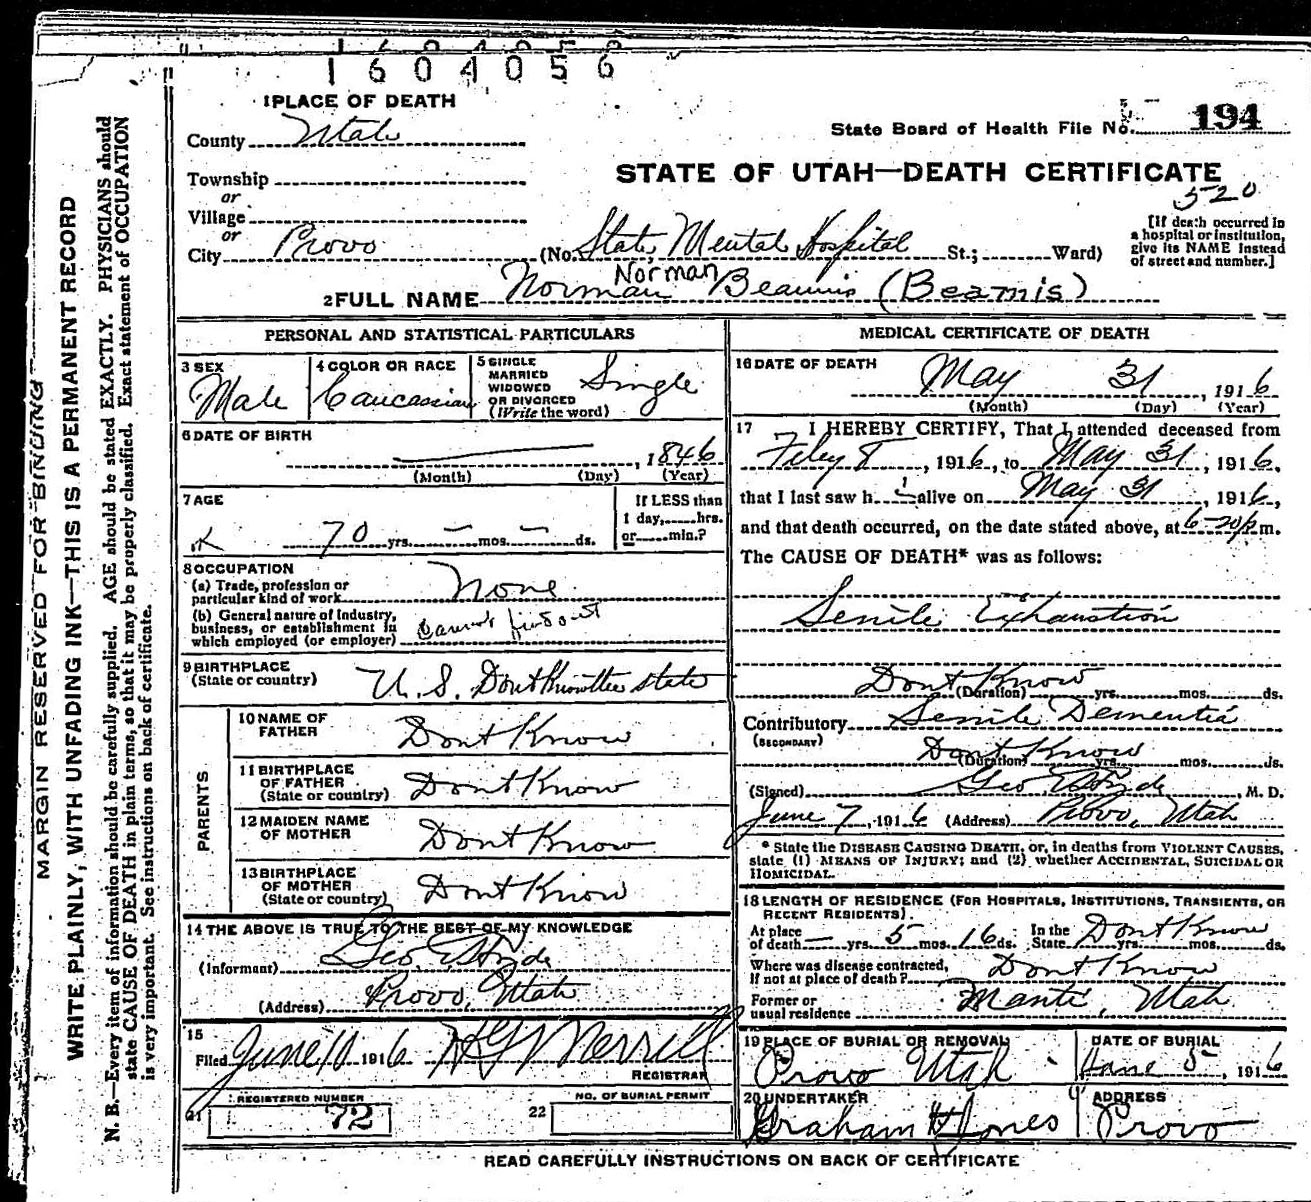 1604056
1 PLACE OF DEATH
County Utah
State Board of Health File No. 194
Township
or
Village
or
City Provo
STATE OF UTAH—DEATH CERTIFICATE
520
(No. State Mental Hospital St.; Ward)
[If death occurred in
a hospital or institution,
give its NAME instead
of street and number.]
Norman
2 FULL NAME Norman Beamis (Beamis)
PERSONAL AND STATISTICAL PARTICULARS
3 SEX
Male
4 COLOR OR RACE
Caucassian
5 SINGLE
MARRIED
WIDOWED
OR DIVORCED
(Write the word)
Single
6 DATE OF BIRTH
, 1846
(Month) (Day) (Year)
7 AGE
70 yrs. – mos. – ds.
If LESS than
1 day, hrs.
or min.?
8 OCCUPATION
(a) Trade, profession or
particular kind of work None
(b) General nature of industry,
business, or establishment in
which employed (or employer) Cannot find out
9 BIRTHPLACE
(State or country) U.S. Dont Know the state
PARENTS
10 NAME OF
FATHER Dont Know
11 BIRTHPLACE
OF FATHER
(State or country) Dont Know
12 MAIDEN NAME
OF MOTHER Dont Know
13 BIRTHPLACE
OF MOTHER
(State or country) Dont Know
14 THE ABOVE IS TRUE TO THE BEST OF MY KNOWLEDGE
(Informant) Geo. E. Hyde
(Address) Provo, Utah
15
Filed June 10 1916 H G Merrill
REGISTRAR
21 REGISTERED NUMBER
72
22 NO. OF BURIAL PERMIT
MEDICAL CERTIFICATE OF DEATH
16 DATE OF DEATH
May 31, 1916
(Month) (Day) (Year)
17 I HEREBY CERTIFY, That I attended deceased from
8, 1916, to May 31, 1916,
that I last saw h i alive on May 31, 1916,
and that death occurred, on the date stated above, at 6-20 p m.
The CAUSE OF DEATH* was as follows:
Senile Exhaustion
Dont Know
(Duration) yrs. mos. ds.
Contributory Senile Dementia
(SECONDARY)
Dont Know
(Duration) yrs. mos. ds.
(Signed) Geo E Hyde, M. D.
June 7, 1916 (Address) Provo, Utah
* State the DISEASE CAUSING DEATH, or, in deaths from VIOLENT CAUSES,
state (1) MEANS OF INJURY; and (2) whether ACCIDENTAL, SUICIDAL OR
HOMICIDAL.
18 LENGTH OF RESIDENCE (FOR HOSPITALS, INSTITUTIONS, TRANSIENTS, OR
RECENT RESIDENTS).
At place
of death – yrs. 5 mos. 16 ds.
In the
State Dont Know yrs. mos. ds.
Where was disease contracted,
If not at place of death? Dont Know
Former or
usual residence Manti, Utah
19 PLACE OF BURIAL OR REMOVAL
Provo Utah
DATE OF BURIAL
June 5, 1916
20 UNDERTAKER
Graham H Jones
ADDRESS
Provo
READ CAREFULLY INSTRUCTIONS ON BACK OF CERTIFICATE
MARGIN RESERVED FOR BINDING
WRITE PLAINLY, WITH UNFADING INK—THIS IS A PERMANENT RECORD
N. B.—Every item of information should be carefully supplied. AGE should be stated EXACTLY. PHYSICIANS should
state CAUSE OF DEATH in plain terms, so that it may be properly classified. Exact statement of OCCUPATION
is very important. See instructions on back of certificate.